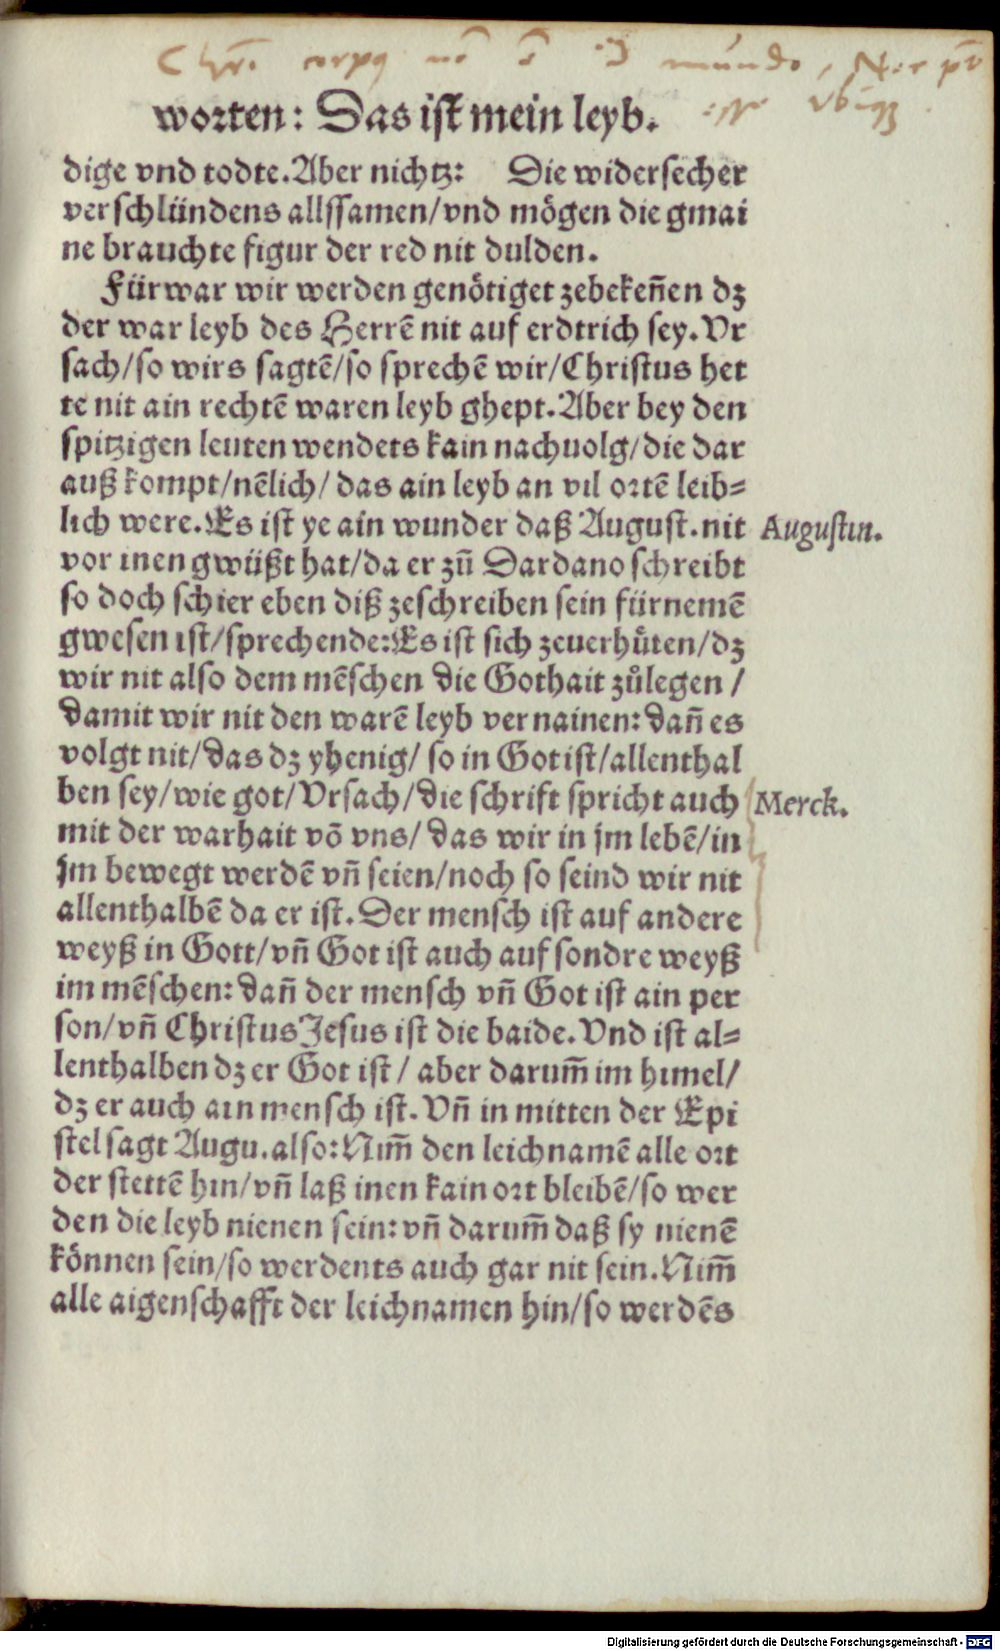 Chr̄i corpꝰ nō ē ī mundo, Nec p̄t
esse vbiqꝫ.
worten: Das ist mein leyb.
dige vnd todte. Aber nichtz: Die widersecher
verschlündens allssamen/vnd mögen die gmai
ne brauchte figur der red nit dulden.
Fürwar wir werden genötiget zebekeñen dz
der war leyb des Herrē nit auf erdtrich sey. Vr
sach/so wirs sagtē/so sprechē wir/Christus het
te nit ain rechtē waren leyb ghept. Aber bey den
spitzigen leuten wendets kain nachuolg/die dar
auß kompt/nēlich/ das ain leyb an vil ortē leib=
lich were. Es ist ye ain wunder daß August. nit
Augustin.
vor inen gwüßt hat/da er zů Dardano schreibt
so doch schier eben diß zeschreiben sein fürnemē
gwesen ist/sprechende: Es ist sich zeuerhůten/dz
wir nit also dem mēschen die Gothait zůlegen /
damit wir nit den warē leyb vernainen: dañ es
volgt nit/das dz yhenig/ so in Got ist/allenthal
ben sey/wie got/Vrsach/die schrift spricht auch
Merck.
mit der warhait vō vns/ das wir in jm lebē/in
jm bewegt werdē vñ seien/noch so seind wir nit
allenthalbē da er ist. Der mensch ist auf andere
weyß in Gott/vñ Got ist auch auf sondre weyß
im mēschen: dañ der mensch vñ Got ist ain per
son/vñ Christus Jesus ist die baide. Vnd ist al=
lenthalben dz er Got ist / aber darum̄ im himel/
dz er auch ain mensch ist. Vñ in mitten der Epi
stel sagt Augu. also: Nim̄ den leichnamē alle ort
der stettē hin/vñ laß inen kain ort bleibē/so wer
den die leyb nienen sein: vñ darum̄ daß sy nienē
können sein/so werdents auch gar nit sein. Nim̄
alle aigenschafft der leichnamen hin/so werdēs
Digitalisierung gefördert durch die Deutsche Forschungsgemeinschaft - DFG